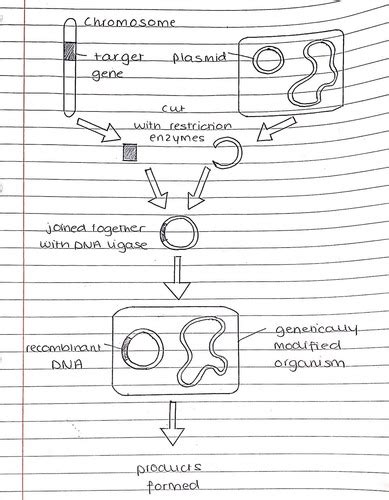 Chromosome
target
gene
plasmid
cut
with restriction
enzymes
joined together
with DNA ligase
recombinant
DNA
genetically
modified
organism
products
formed